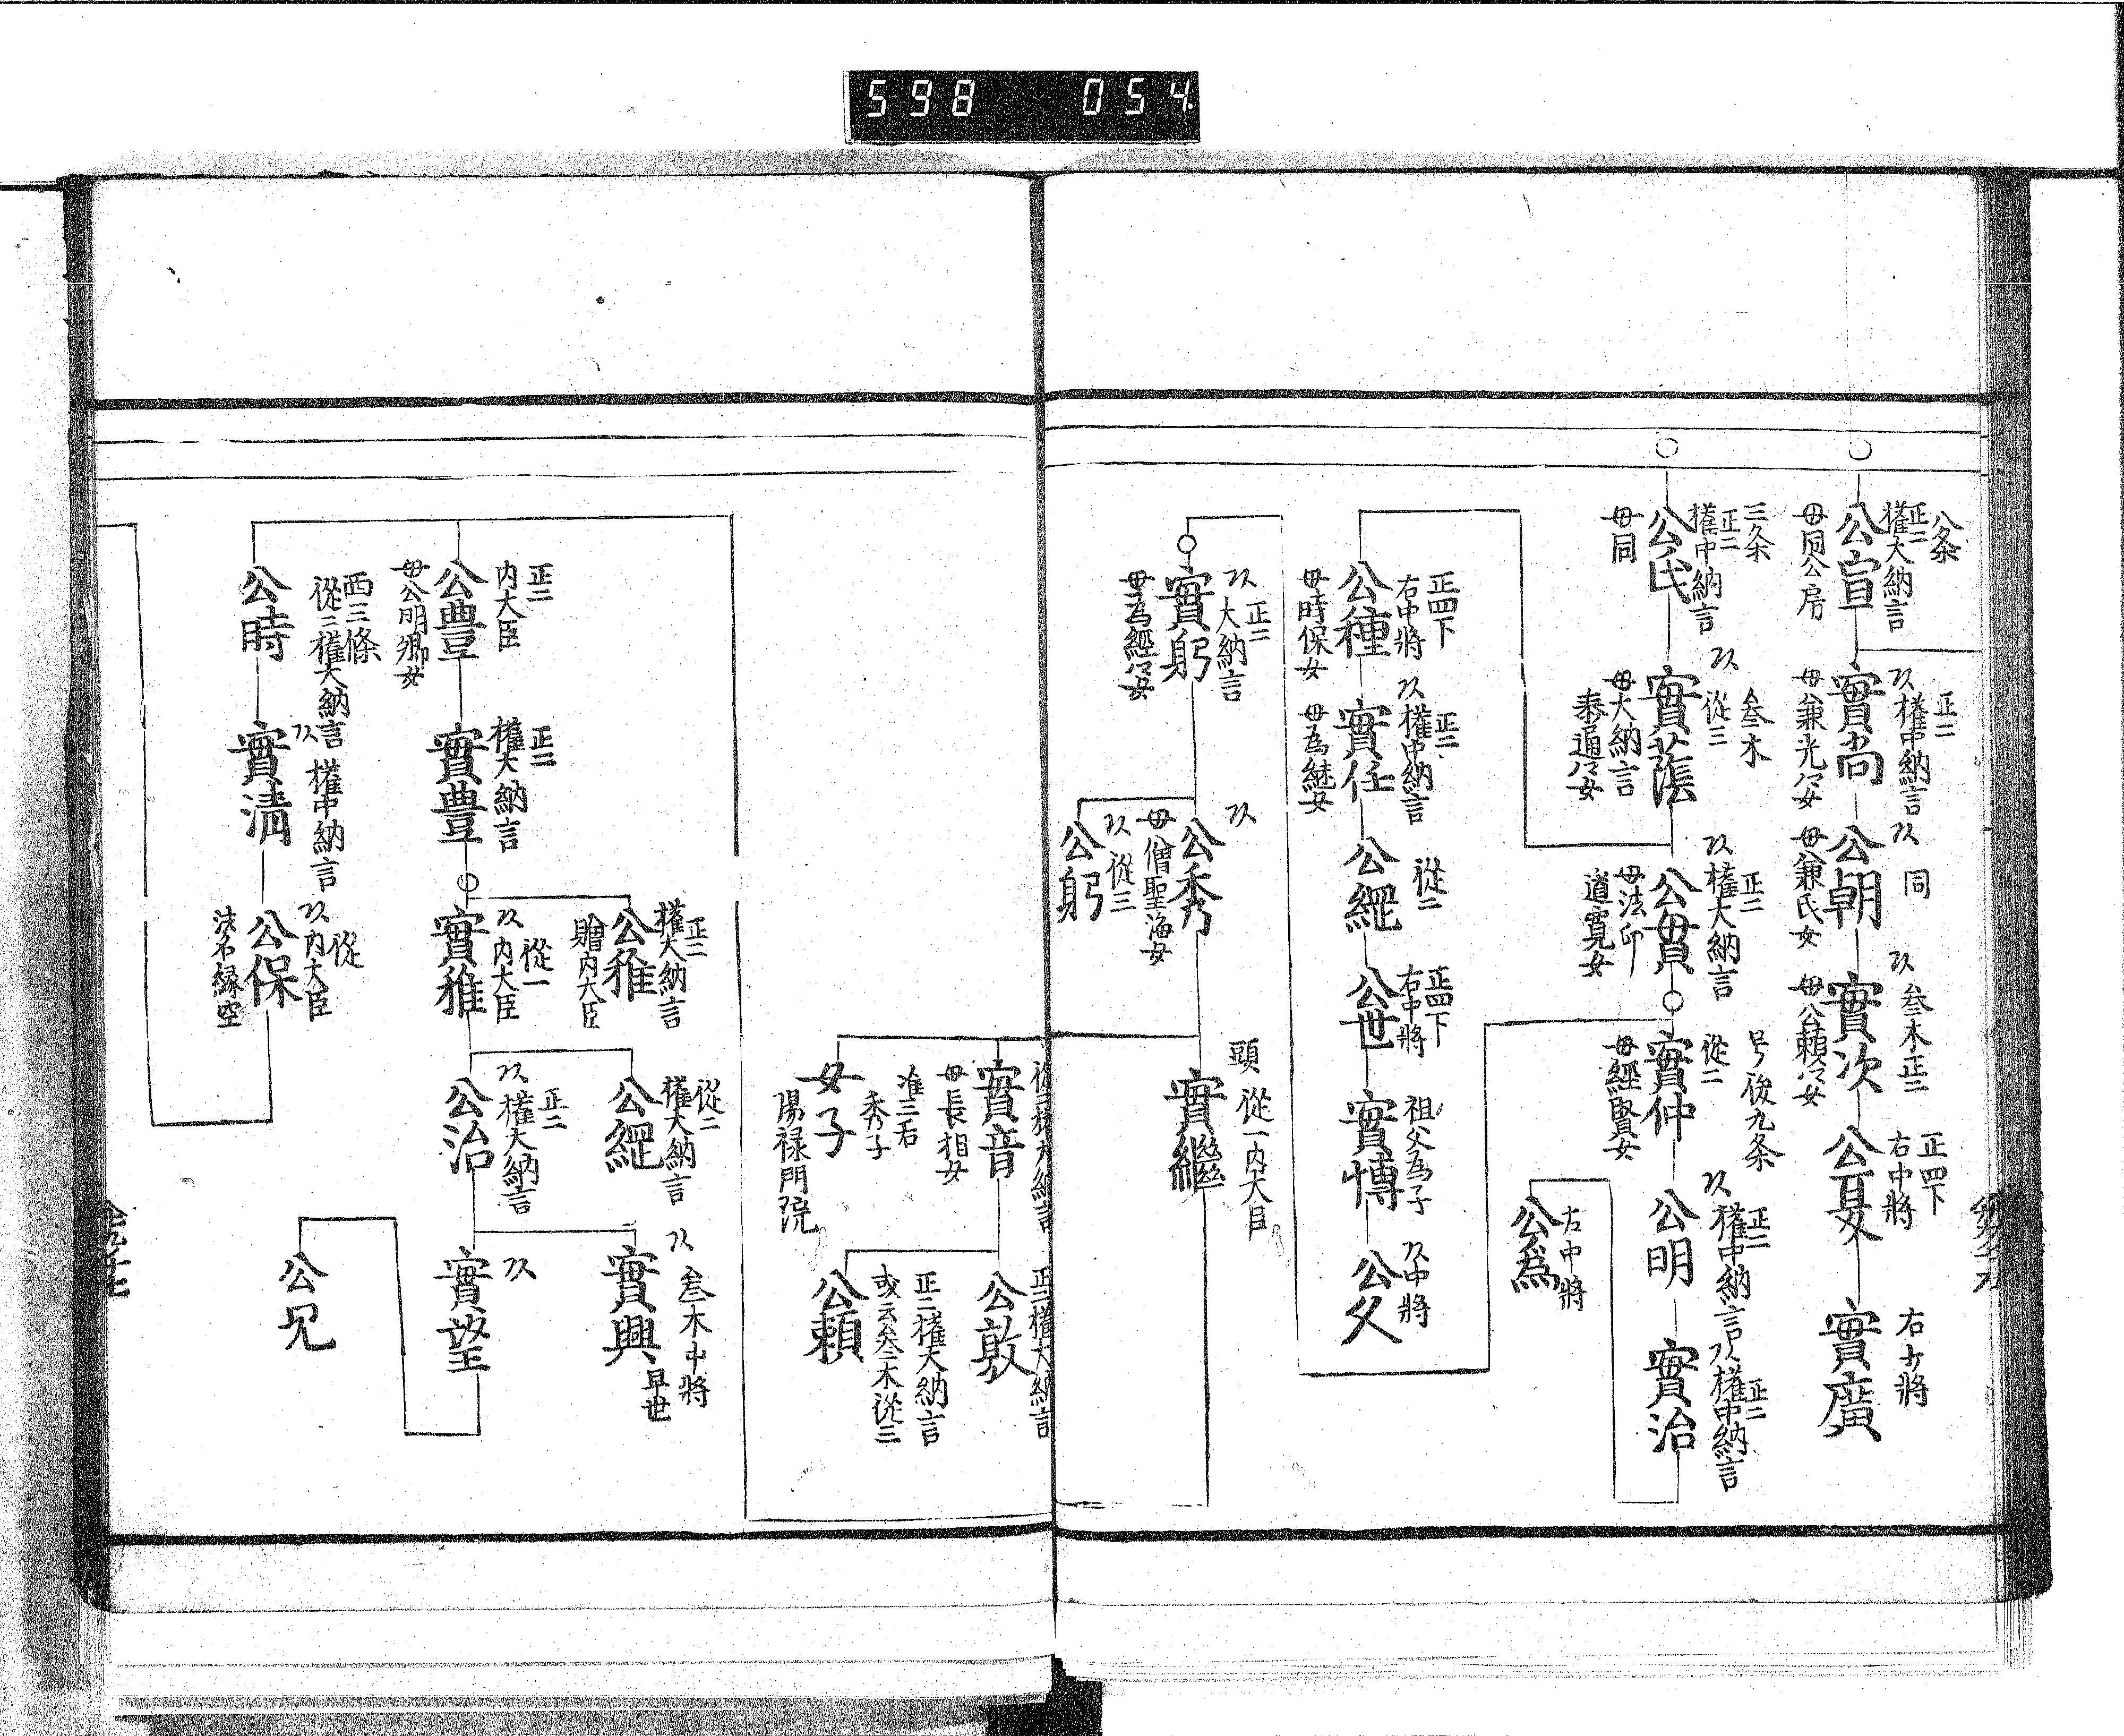 598 054
八条
正二
権大納言
公宣
母同公房
正二
権中納言
實尚
母兼光女
同
公朝
母兼氏女
叁木正二
實次
母公頼女
正四下
右中将
右少将
實廣
三条
正二
権中納言
公氏
母同
叁木
從三
實蔭
母大納言
泰通女
正二
権大納言
公貫
母法印
道寛女
号後九条
從二
實仲
母経賢女
正二
権中納言
公明
正二
権中納言
實治
右中将
公為
正四下
右中将
公種
母時保女
正二
権中納言
實任
母為継女
從二
公纒
正四下
右中将
公世
祖父為子
實博
中将
公父
正二
大納言
實躬
母為經女
公秀
母僧聖海女
從三
公躬
頭
從一内大臣
實繼
從二権大納言
實音
母長相女
准三后
秀子
女子
陽禄門院
正二権大納言
公敦
正二権大納言
或云叁木從三
公頼
正二
内大臣
公豊
母公明卿女
正二
権大納言
實豊
正二
権大納言
公雅
贈内大臣
從一
内大臣
實雅
從二
権大納言
正二
権大納言
公治
叁木中将
實興
早世
實望
公兄
西三條
從二権大納言
公時
権中納言
實清
從
内大臣
公保
法名縁空